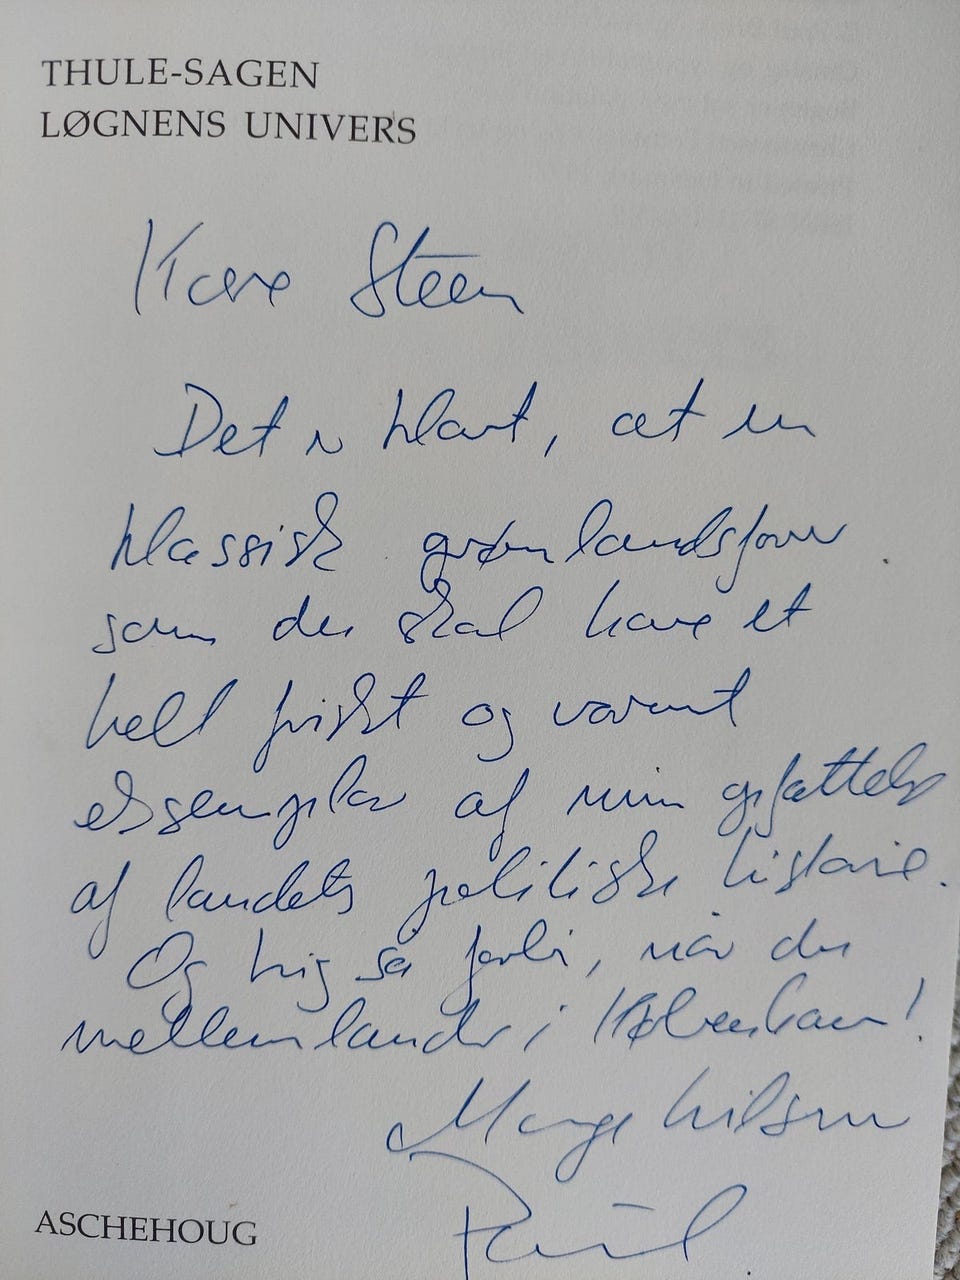 THULE-SAGEN
LØGNENS UNIVERS
Kære Steen
Det er klart, at en
klassisk grønlandsfarer
som du skal have et
helt friskt og varmt
eksemplar af min opfattelse
af landets politiske historie.
Og kig så forbi, når du
mellemlander i København!
Mange hilsner
Poul
ASCHEHOUG